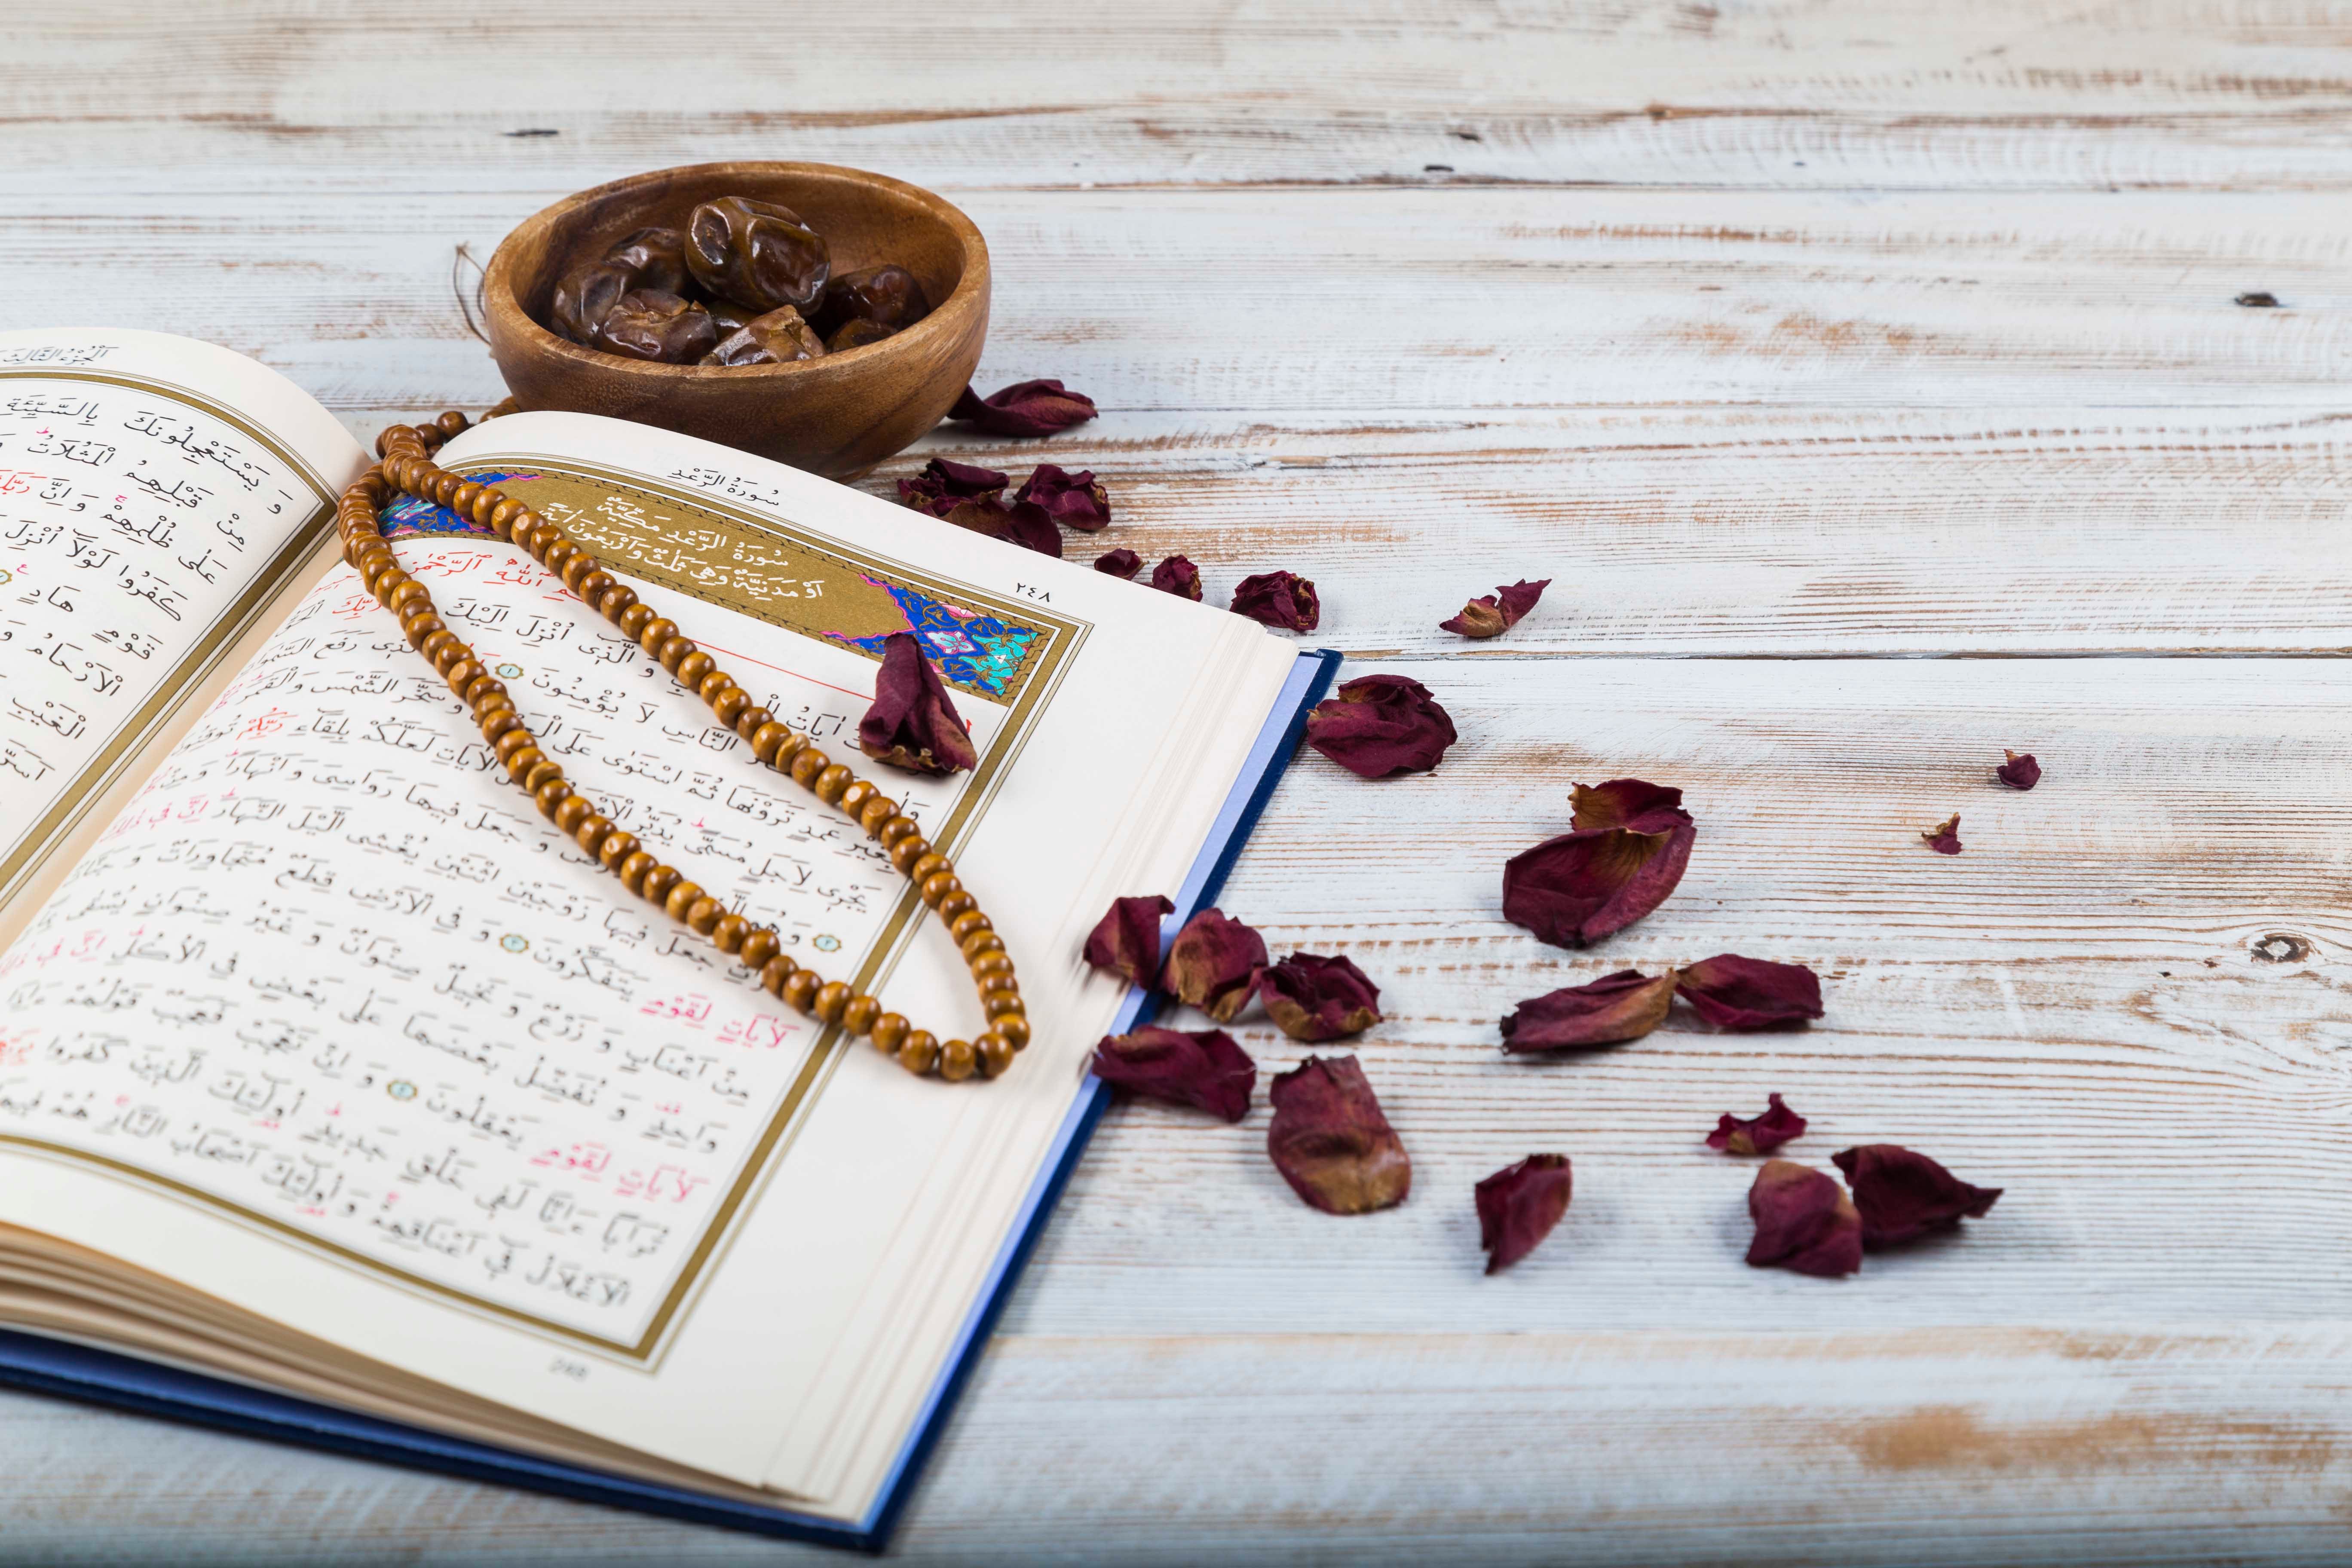 سُورَةُ الرَّعْدِ
٢٤٨
سُورَةُ الرَّعْدِ مَكِّيَّةٌ
اَوْ مَدَنِيَّةٌ وَهِيَ ثَلٰثٌ وَاَرْبَعُونَ اٰيَةً
اللّٰهِ الرَّحْمٰنِ
اٰيَاتُ وَ الَّذٖٓى اُنْزِلَ اِلَيْكَ رَبِّكَ
النَّاسِ لَا يُؤْمِنُونَ ١ رَفَعَ السَّمٰوَاتِ
بِغَيْرِ عَمَدٍ تَرَوْنَهَا ثُمَّ اسْتَوٰى عَلَى وَسَخَّرَ الشَّمْسَ وَالْقَمَرَ
يَجْرٖى لِاَجَلٍ مُسَمًّى يُدَبِّرُ الْاٰيَاتِ لَعَلَّكُمْ بِلِقَٓاءِ رَبِّكُمْ تُوقِنُونَ
٢ وَهُوَ وَ جَعَلَ فٖيهَا رَوَاسِىَ وَ اَنْهَارًا وَ مِنْ
جَعَلَ فٖيهَا زَوْجَيْنِ اثْنَيْنِ يُغْشِى الَّيْلَ النَّهَارَ اِنَّ فٖى ذٰلِكَ
لَاٰيَاتٍ لِقَوْمٍ يَتَفَكَّرُونَ ٣ وَ فِى الْاَرْضِ قِطَعٌ مُتَجَاوِرَاتٌ وَ جَنَّاتٌ
مِنْ اَعْنَابٍ وَ زَرْعٌ وَ نَخٖيلٌ صِنْوَانٌ وَ غَيْرُ صِنْوَانٍ يُسْقٰى
وَاحِدٍ وَ نُفَضِّلُ بَعْضَهَا عَلٰى بَعْضٍ فِى الْاُكُلِ اِنَّ فٖى ذٰلِكَ
لَاٰيَاتٍ لِقَوْمٍ يَعْقِلُونَ ٤ وَ اِنْ تَعْجَبْ فَعَجَبٌ قَوْلُهُمْ ءَاِذَا
تُرَابًا ءَاِنَّا لَفٖى خَلْقٍ جَدٖيدٍ اُولٰٓئِكَ الَّذٖينَ كَفَرُوا
الْاَغْلَالُ فٖٓى اَعْنَاقِهِمْ وَ اُولٰٓئِكَ اَصْحَابُ النَّارِ هُمْ فٖيهَا
اَلْجُزْءُ الثَّالِثَ
وَ يَسْتَعْجِلُونَكَ بِالسَّيِّئَةِ
مِنْ قَبْلِهِمُ الْمَثُلَاتُ
عَلٰى ظُلْمِهِمْ وَ اِنَّ رَبَّكَ
كَفَرُوا لَوْلَٓا اُنْزِلَ
قَوْمٍ هَادٍ
الْاَرْحَامُ وَ
الْغَيْبِ